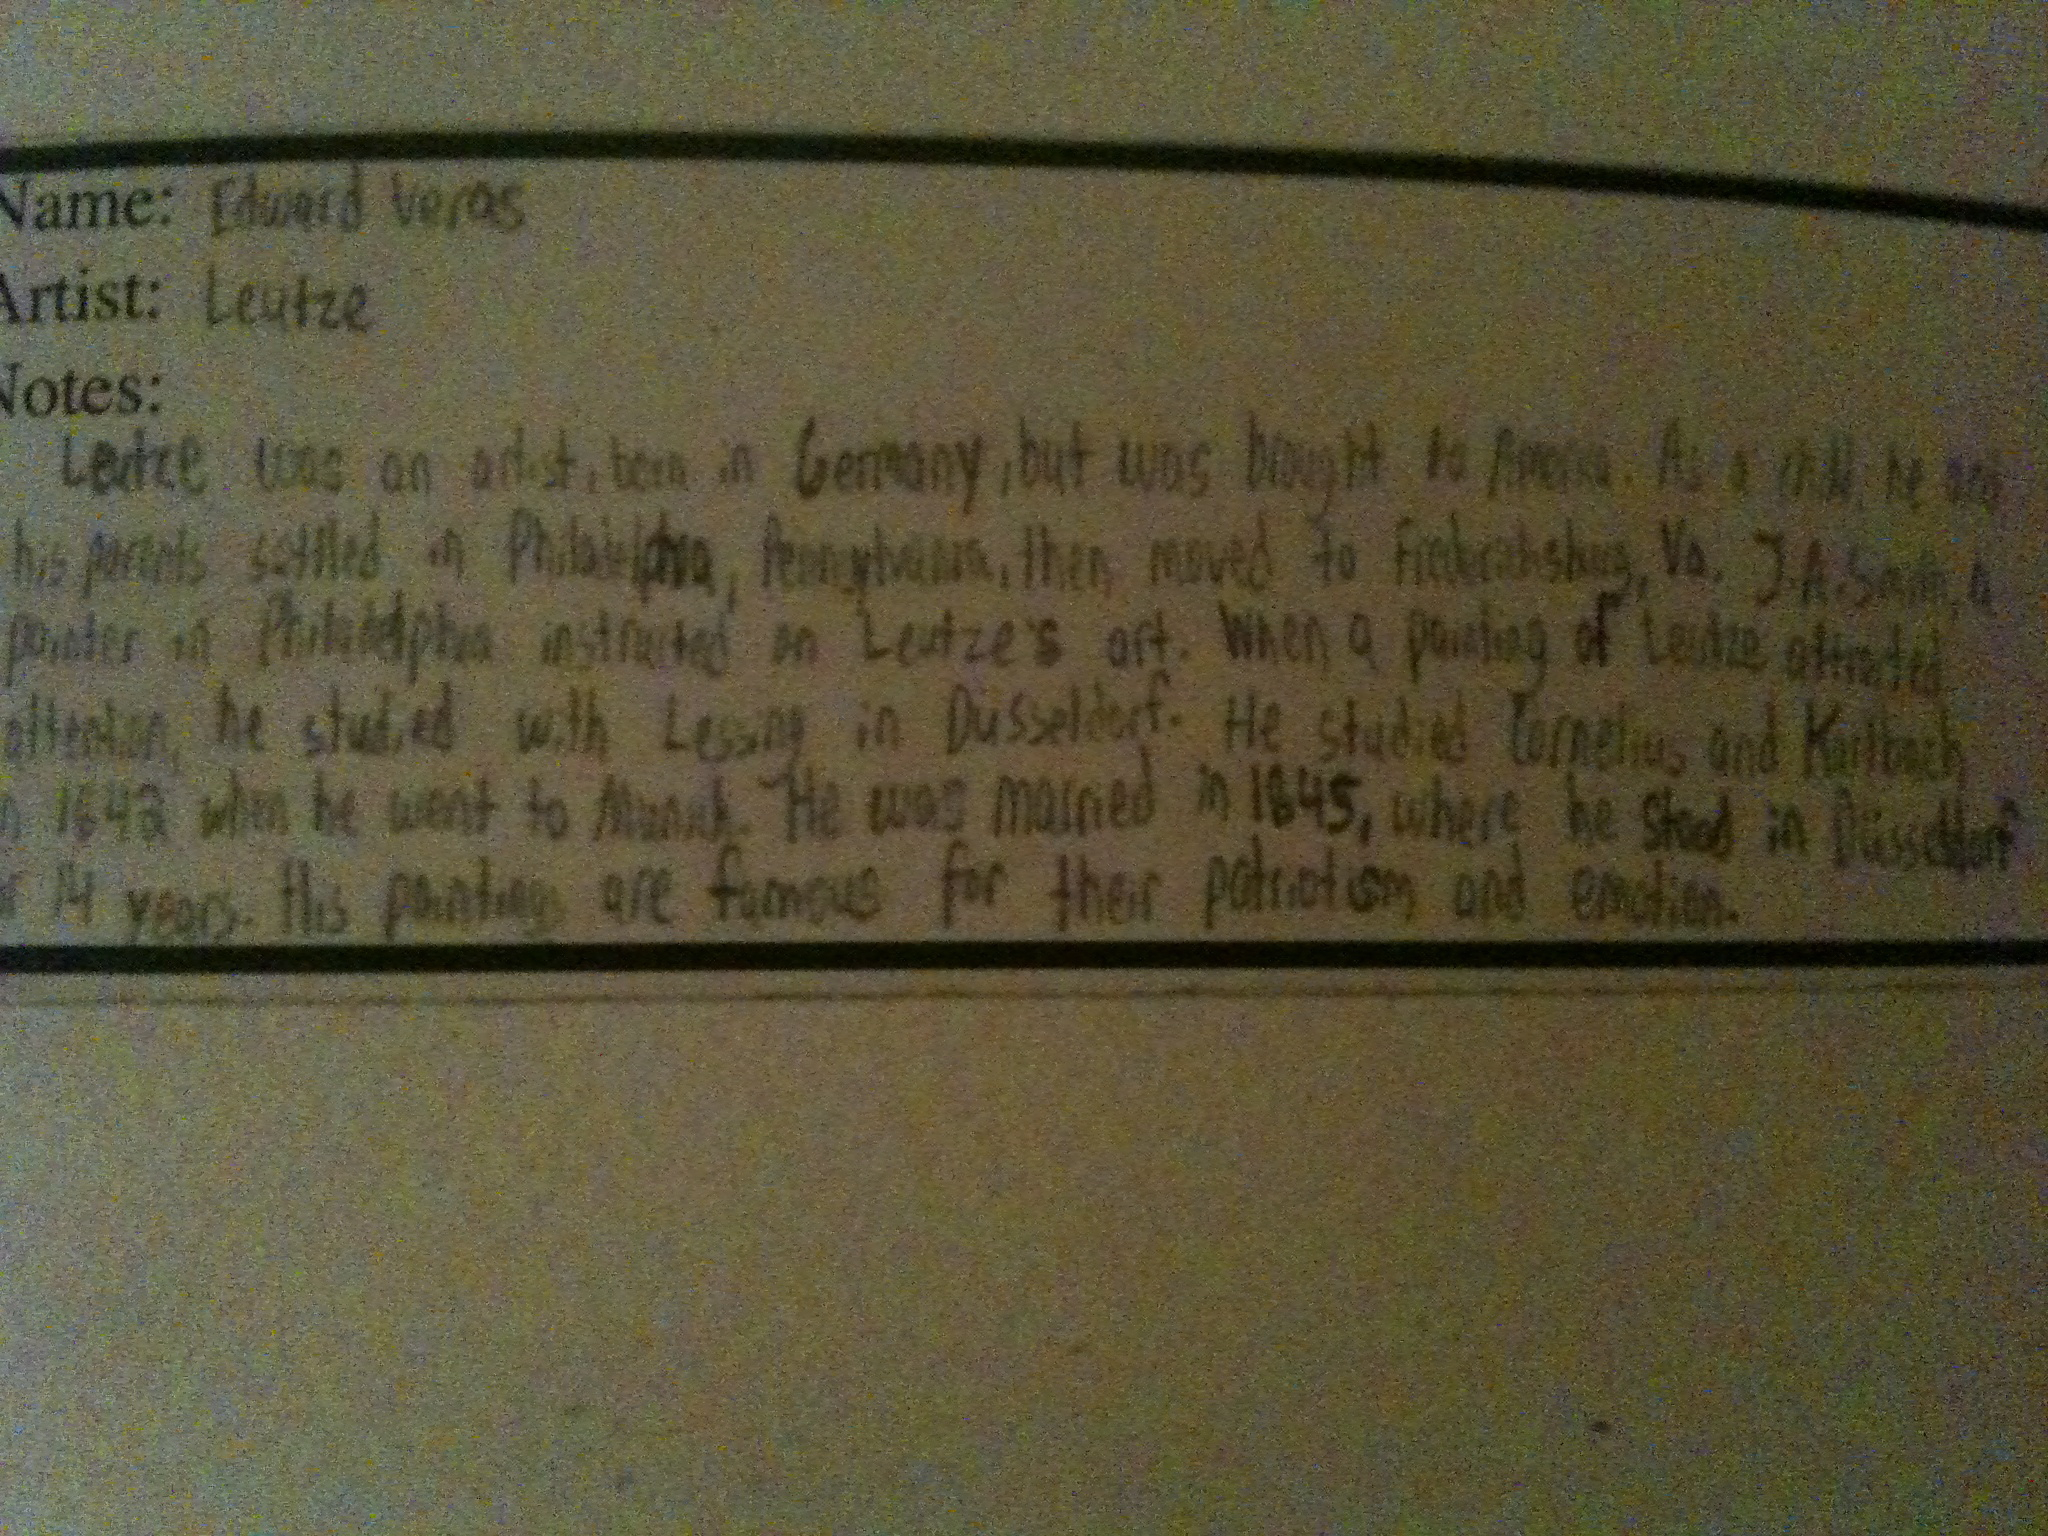 Name: Edward Veras
Artist: Leutze
Notes:
Leutze was an artist, born in Germany, but was brought to America. As a child, he and
his parents settled in Philadelphia, Pennsylvania, then moved to Fredericksburg, Va. J.A. Smith, a
painter in Philadelphia instructed on Leutze's art. When a painting of Leutze attracted
attention, he studied with Lessing in Düsseldorf. He studied Cornelius and Karlbach
in 1842 when he went to Munich. He was married in 1845, where he stood in Düsseldorf
14 years. His paintings are famous for their patriotism and emotion.